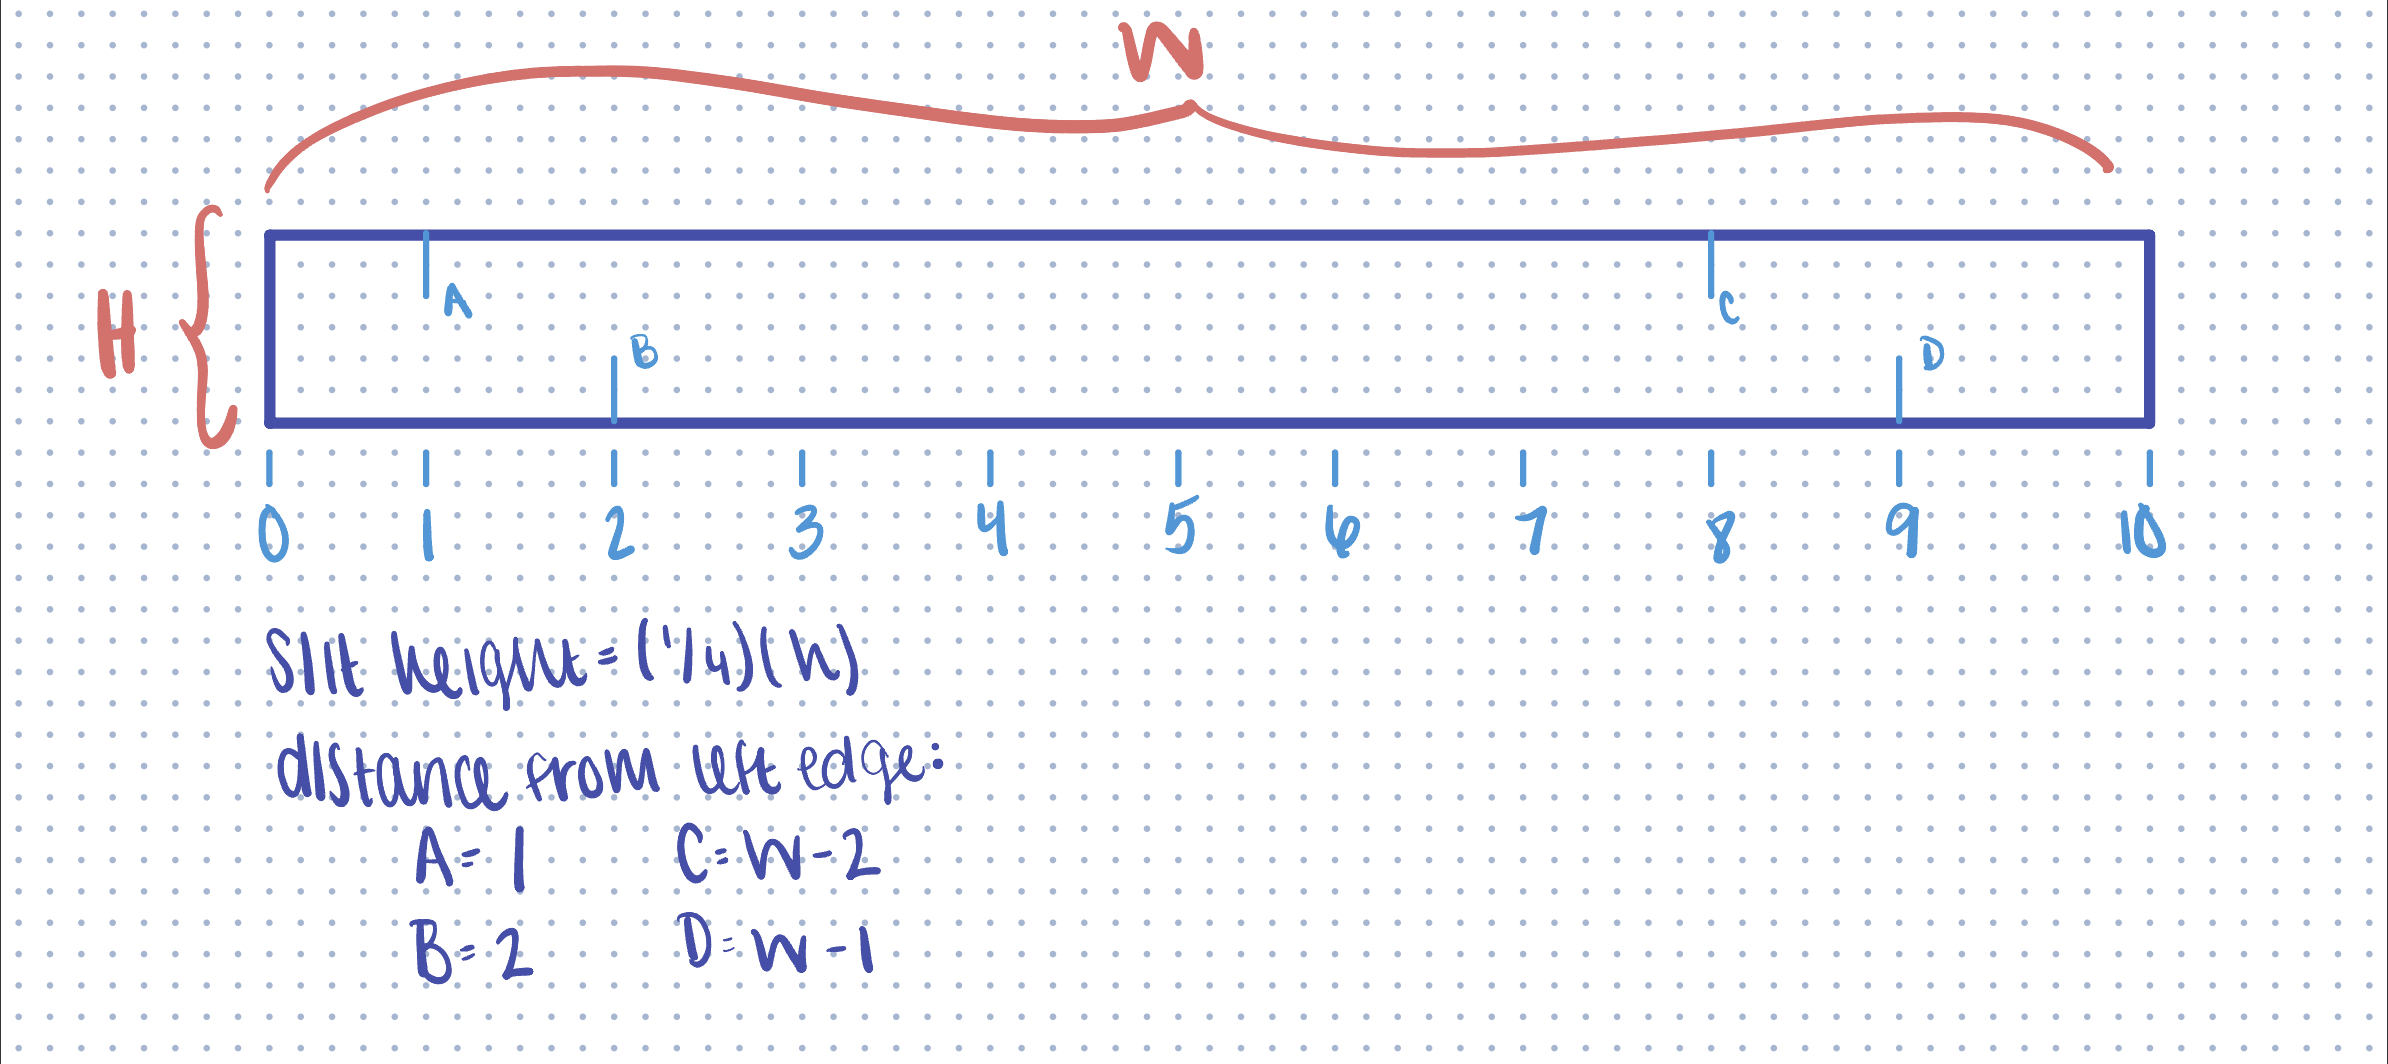 W
H
A
C
B
D
0 1 2 3 4 5 6 7 8 9 10
Slit height = (1/4)(h)
distance from left edge:
A = 1 C = W - 2
B = 2 D = W - 1